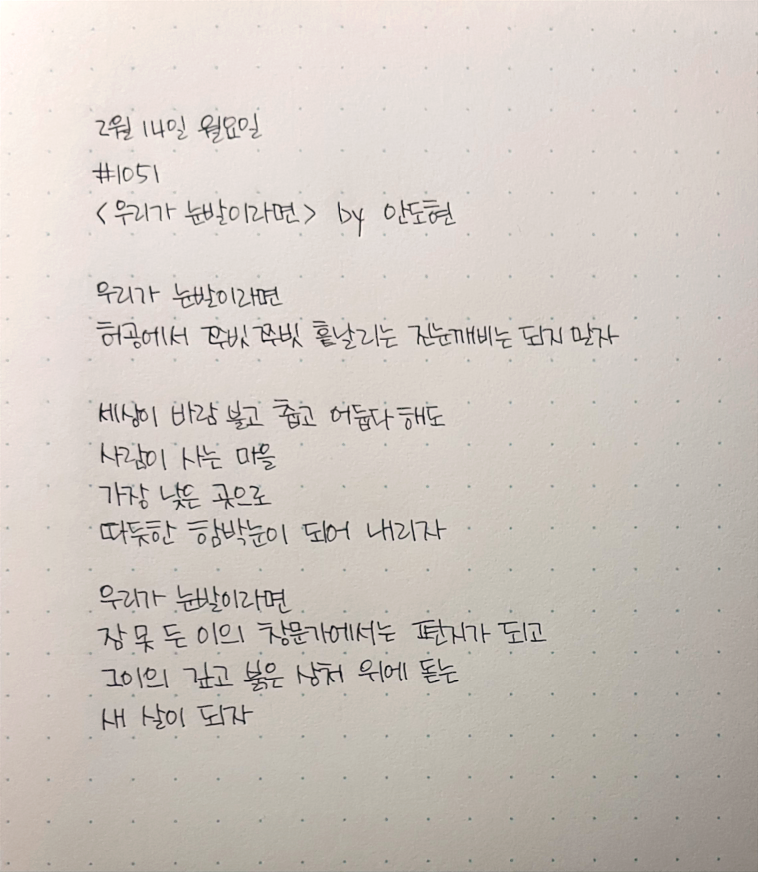 2월 14일 월요일
#1051
<우리가 눈발이라면> by 안도현
우리가 눈발이라면
허공에서 쭈빗쭈빗 흩날리는 진눈깨비는 되지 말자
세상이 바람 불고 춥고 어둡다 해도
사람이 사는 마을
가장 낮은 곳으로
따듯한 함박눈이 되어 내리자
우리가 눈발이라면
잠 못 든 이의 창문가에서는 편지가 되고
그이의 깊고 붉은 상처 위에 돋는
새 살이 되자